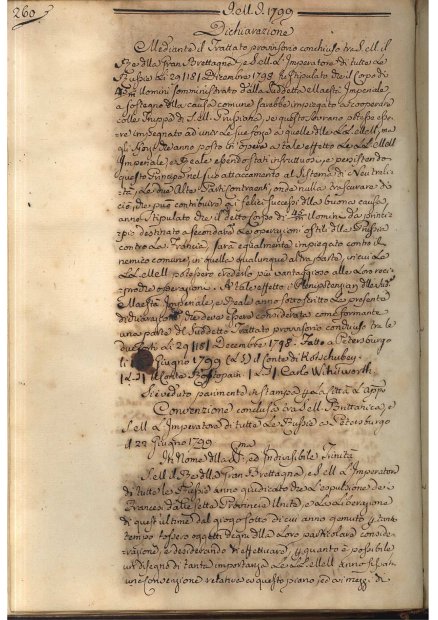 260
Nell. A. 1799
Dichiarazione
Mediante il Trattato provisorio conchiuso tra S. M. il
Re della Gran Brettagna, e S. M. L'Imperatore di tutte le
Russie li 29/18/ Dicembre 1798 fu stipulato che il Corpo di
45/m Uomini somministrato dalla suddetta Maestà Imperiale,
a sostegno della causa comune sarebbe impiegato a cooperare
colle Truppe di S. M. Prussiana, se questo Sovrano potesse esse-
re impegnato ad unir la sue forze a quelle delle LL. MM., ma
gli sforzi che anno posto in opera a tale effetto le LL. MM.
Imperiale, e Reale essendo stati infruttuosi, e persistendo
questo Principe nel suo attaccamento al sistema di Neutrali-
tà, le due Alte Parti contraenti, onde nulla trascurare di
ciò, che può contribuire a' felici successi della buona causa,
anno stipulato che il detto Corpo di 45/m Uomini da princi-
pio destinato a secondare le operazioni ostili della Prussia
contro la Francia, sarà egualmente impiegato contro il
nemico comune, in quella qualunque altra parte, in cui le
LL. MM. potessero crederlo più vantaggioso alle loro reci-
proche operazioni. A tale effetto i Plenipotenziarj delle
Maestà Imperiale, e Reale anno sottoscritto la presente
dichiarazione, che deve essere considerata come formante
una parte del suddetto Trattato provisorio conchiuso tra le
due Corti li 29/18/ Decembre 1798. Fatto a Petersburgo
li Giugno 1799 (L. S.) il Conte di Kotschubey
(L. S.) il Conte Rostopsin (L. S.) Carlo Withworth.
Si è veduto parimente in stampa
Convenzione conclusa tra S. M. Brittanica, e
S. M. L'Imperatore di tutte le Russie a Petersburgo
il 22 Giugno 1799
In Nome della SSma, ed Indivisibile Trinità
S. M. il Re della Gran Brettagna, e S. M. L'Imperatore
di tutte le Russie anno giudicato che l'espulsione de'
Francesi dalle sette Provincie Unite, e la liberazione
di quest'ultime dal giogo sotto di cui anno gemuto
tempo fossero oggetti degni della loro particolare conside-
razione, e desiderando di effettuare, quanto è possibile
un disegno di tanta importanza le LL. MM. anno
una convenzione relativa a questo piano, ed a' mezzi di